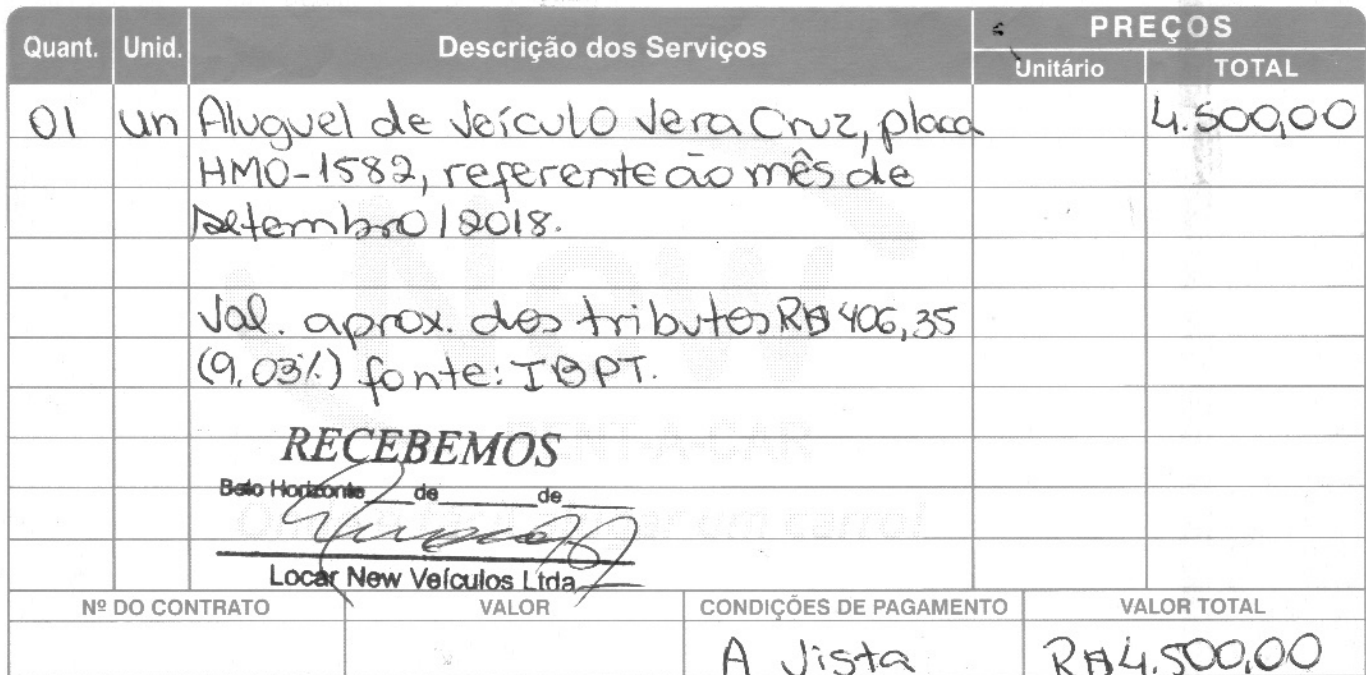 PREÇOS
Quant. Unid. Descrição dos Serviços Unitário TOTAL
01 un Aluguel de veículo Vera Cruz, placa 4.500,00
HMO-1582, referente ao mês de
setembro/2018.
Val. aprox. dos tributos R$ 406,35
(9,03%) fonte: IBPT.
RENT-A-CAR
RECEBEMOS
Belo Horizonte ___ de ______ de ____
Locar New Veículos Ltda
Nº DO CONTRATO VALOR CONDIÇÕES DE PAGAMENTO VALOR TOTAL
A vista R$4.500,00